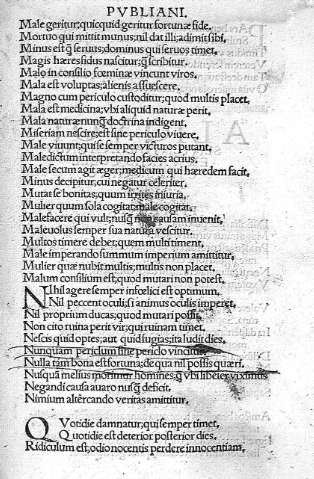 PVBLIANI.
Male geritur; quicquid geritur fortunæ fide.
Mortuo qui mittit munus; nil dat illi; adimit sibi.
Minus est q̃ seruus; dominus qui seruos timet.
Magis hæres fidus nascitur; q̃ scribitur.
Malo in consilio fœminæ vincunt viros.
Mala est voluptas; alienis assuescere.
Magno cum periculo custoditur; quod multis placet.
Mala est medicina; vbi aliquid naturæ perit,
Mala naturæ nunq̃ doctrina indigent,
Miseriam nescire; est sine periculo viuere,
Male viuunt; qui se semper victuros putant,
Maledictum interpretando facies acrius,
Male secum agit æger; medicum qui hæredem facit,
Minus decipitur, cui negatur celeriter,
Mutat se bonitas; quum irrites iniuria,
Mulier quum sola cogitat; male cogitat,
Malefacere qui vult; nusq̃ non causam inuenit,
Maleuolus semper sua natura vescitur.
Multos timere debet; quem multi timent,
Male imperando summum imperium amittitur,
Mulier quæ nubit multis; multis non placet,
Malum consilium est; quod mutari non potest.
Nihil agere semper infœlici est optimum.
Nil peccent oculi; si animus oculis imperet,
Nil proprium ducas; quod mutari possit.
Non cito ruina perit vir; qui ruinam timet.
Nescis quid optes; aut quid fugias; ita ludit dies.
Nunquam periclum sine periclo vincitur.
Nulla tam bona est fortuna; de qua nil possis quæri.
Nusq̃ melius morimur homines; q̃ vbi libeter viximus
Negandi causa auaro nusq̃ deficit.
Nimium altercando veritas amittitur,
Quotidie damnatur, qui semper timet,
Quotidie est deterior posterior dies.
Ridiculum est; odio nocentis perdere innocentiam,